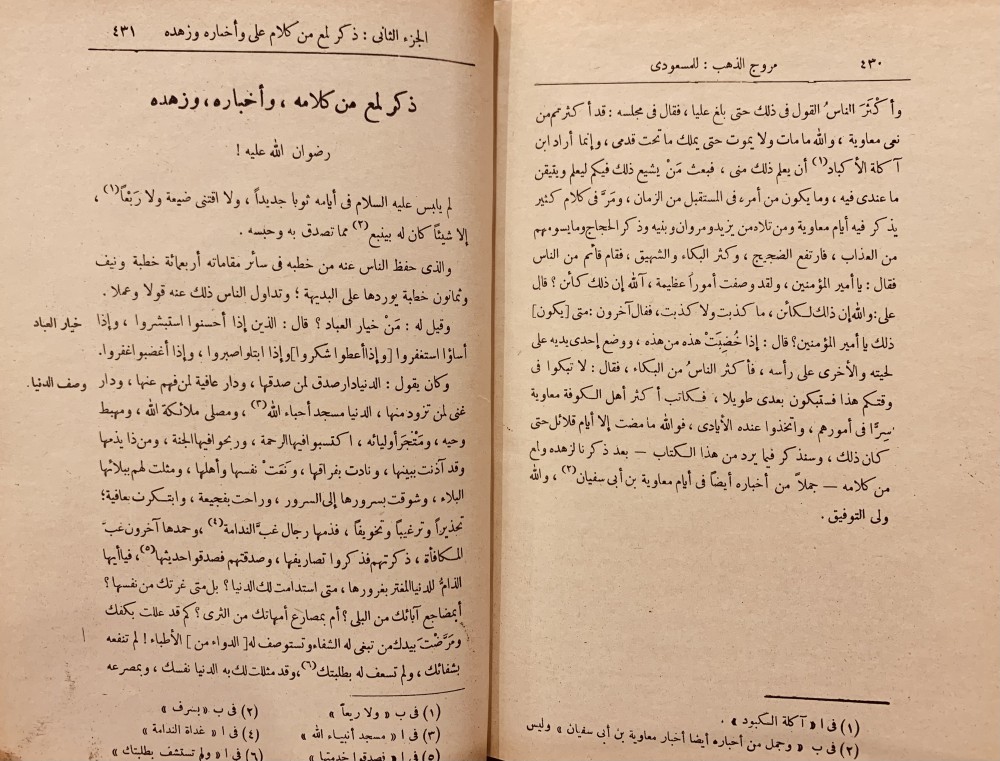 ٤٣٠ مروج الذهب : للمسعودى
وأكْثَرَ الناسُ القول فى ذلك حتى بلغ عليا ، فقال فى مجلسه : قد أكثرتم من
نعى معاوية ، والله ما مات ولا يموت حتى يملك ما تحت قدمى ، وإنما أراد ابن
آكلة الأكباد(١) أن يعلم ذلك منى ، فبعث مَنْ يشيع ذلك فيكم ليعلم ويتيقن
ما عندى فيه ، وما يكون من أمره فى المستقبل من الزمان ، ومَرَّ فى كلام كثير
يذكر فيه أيام معاوية ومن تلاه من يزيد ومروان وبنيه وذكر الحجاج وما يسومهم
من العذاب ، فارتفع الضجيج ، وكثر البكاء والشهيق ، فقام قائم من الناس
فقال : يا أمير المؤمنين ، ولقد وصفت أموراً عظيمة ، آلله إن ذلك كائن ؟ قال
على : والله إن ذلك لكائن ، ما كذبت ولا كذبت ، فقال آخرون : متى [يكون]
ذلك يا أمير المؤمنين؟ قال : إذا خُضِبَتْ هذه من هذه ، ووضع إحدى يديه على
لحيته والأخرى على رأسه ، فأكثر الناسُ من البكاء ، فقال : لا تبكوا فى
وقتكم هذا فستبكون بعدى طويلا ، فكاتب أكثر أهل الكوفة معاوية
سِرًّا فى أمورهم ، واتخذوا عنده الأيادى ، فوالله ما مضت إلا أيام قلائل حتى
كان ذلك ، وسنذكر فيما يرد من هذا الكتاب — بعد ذكرنا لزهده ولمع
من كلامه — جملاً من أخباره أيضاً فى أيام معاوية بن أبى سفيان(٢) ، والله
ولى التوفيق .
(١) فى ا « آكلة الكبود » .
(٢) فى ب « وجمل من أخباره أيضا أخبار معاوية بن أبى سفيان » وليس
الجزء الثانى : ذكر لمع من كلام على وأخباره وزهده ٤٣١
ذكر لمع من كلامه ، وأخباره ، وزهده
رضوان الله عليه !
لم يلبس عليه السلام فى أيامه ثوبا جديداً ، ولا اقتنى ضيعة ولا رَبْعاً(١) ،
إلا شيئاً كان له بينبع(٢) مما تصدق به وحبسه .
والذى حفظ الناس عنه من خطبه فى سائر مقاماته أربعمائة خطبة ونيف
وثمانون خطبة يوردها على البديهة ؛ وتداول الناس ذلك عنه قولا وعملا .
خيار العباد
وقيل له : مَنْ خيار العباد ؟ قال : الذين إذا أحسنوا استبشروا ، وإذا
أساؤا استغفروا [وإذا أعطوا شكروا] وإذا ابتلوا صبروا ، وإذا أغضبوا غفروا .
وصف الدنيا.
وكان يقول : الدنيا دار صدق لمن صدقها ، ودار عافية لمن فهم عنها ، ودار
غنى لمن تزود منها ، الدنيا مسجد أحباء الله(٣) ، ومصلى ملائكة الله ، ومهبط
وحيه ، ومَتْجَر أوليائه ، اكتسبوا فيها الرحمة ، وربحوا فيها الجنة ، ومن ذا يذمها
وقد آذنت ببينها ، ونادت بفراقها ، ونَعَتْ نفسها وأهلها ، ومثلت لهم ببلائها
البلاء ، وشوقت بسرورها إلى السرور ، وراحت بفجيعة ، وابتكرت بعافية؛
تحذيراً وترغيباً وتخويفاً ، فذمها رجال غبَّ الندامة(٤) ، وحمدها آخرون غبَّ
المكافأة ، ذكرتهم فذكروا تصاريفها ، وصدقتهم فصدقوا حديثها(٥) ، فيا أيها
الذامُّ للدنيا المغتر بغرورها ، متى استدامت لك الدنيا ؟ بل متى غرتك من نفسها ؟
أبمضاجع آبائك من البلى ؟ أم بمصارع أمهاتك من الثرى ؟ كم قد عللت بكفك
ومَرَّضْتَ بيدك من تبغى له الشفاء وتستوصف له [ الدواء من ] الأطباء ! لم تنفعه
بشفائك ، ولم تسعف له بطلبتك(٦) ، وقد مثلت لك به الدنيا نفسك ، وبمصرعه
(١) فى ب « ولا ريعاً » (٢) فى ب « بسرف »
(٣) فى ا « مسجد أنبياء الله » (٤) فى ا « غداة الندامة »
(٥) فى ا « فصدقوا خدمتها » (٦) فى ا « ولم تستشف بطلبتك »